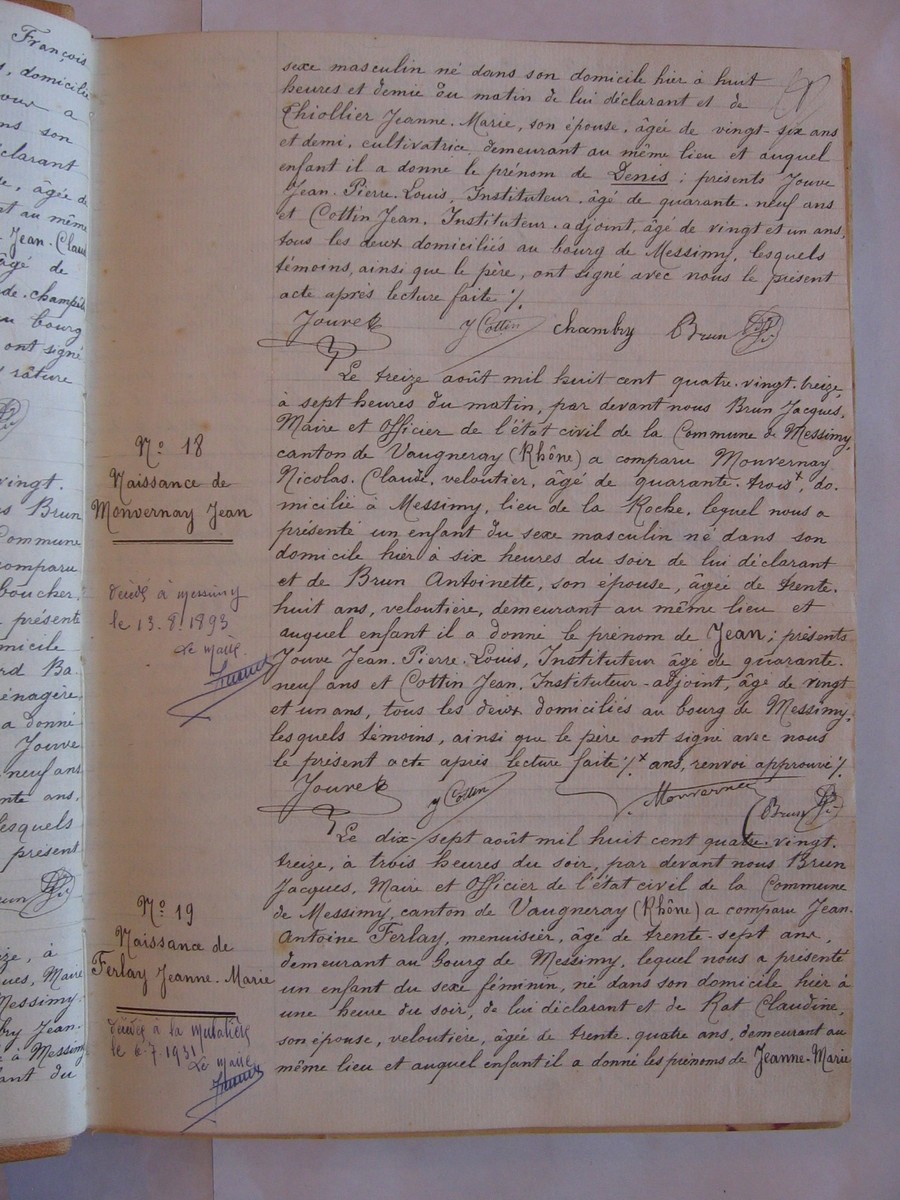 François
, domicilié
ns son
clarant
, âgée de
nt au même
Jean. Clau
âgé de
de. champê
u bourg
ont signé
râture
vingt.
s Brun
Commune
comparu
boucher.
présenté
micile
rd Ba.
énagère,
a donné
Jouve
neuf ans
nte ans,
lesquels
présent
ize, à
ues, Maire
Messimy.
bry Jean.
e à Messimy
ant du
sexe masculin né dans son domicile hier à huit
heures et demie du matin de lui déclarant et de
Chiollier Jeanne. Marie, son épouse, âgée de vingt-six ans
et demi, cultivatrice, demeurant au même lieu et auquel
enfant il a donné le prénom de Denis ; présents Jouve
Jean. Pierre. Louis, Instituteur, âgé de quarante. neuf ans
et Cottin Jean. Instituteur. adjoint, âgé de vingt et un ans,
tous les deux domiciliés au bourg de Messimy, lesquels
témoins, ainsi que le père, ont signé avec nous le présent
acte après lecture faite ./.
Jouve J Cottin Chambry Brun
N° 18
Naissance de
Monvernay Jean
Décédé à Messimy
le 13.8.1893
Le Maire
Le treize août mil huit cent quatre. vingt. treize,
à sept heures du matin, par devant nous Brun Jacques,
Maire et Officier de l'état civil de la Commune de Messimy,
canton de Vaugneray (Rhône) a comparu Monvernay
Nicolas. Claude, veloutier, âgé de quarante. trois x, do.
micilié à Messimy, lieu de la Roche, lequel nous a
présenté un enfant du sexe masculin né dans son
domicile hier à six heures du soir de lui déclarant
et de Brun Antoinette, son épouse, âgée de trente.
huit ans, veloutière, demeurant au même lieu et
auquel enfant il a donné le prénom de Jean ; présents
Jouve Jean. Pierre. Louis, Instituteur âgé de quarante.
neuf ans et Cottin Jean. Instituteur-adjoint, âgé de vingt
et un ans, tous les deux domiciliés au bourg de Messimy,
lesquels témoins, ainsi que le père ont signé avec nous
le présent acte après lecture faite ./. x ans, renvoi approuvé ./.
Jouve J Cottin Monvernay Brun
N° 19
Naissance de
Ferlay Jeanne. Marie
Décédée à la Mulatière
le 6-7-1931
Le Maire
Le dix-sept août mil huit cent quatre. vingt.
treize, à trois heures du soir, par devant nous Brun
Jacques, Maire et Officier de l'état civil de la Commune
de Messimy, canton de Vaugneray (Rhône) a comparu Jean.
Antoine Ferlay, menuisier, âgé de trente-sept ans,
demeurant au bourg de Messimy, lequel nous a présenté
un enfant du sexe féminin, né dans son domicile hier à
une heure du soir, de lui déclarant et de Rat Claudine,
son épouse, veloutière, âgée de trente. quatre ans, demeurant au
même lieu et auquel enfant il a donné les prénoms de Jeanne-Marie